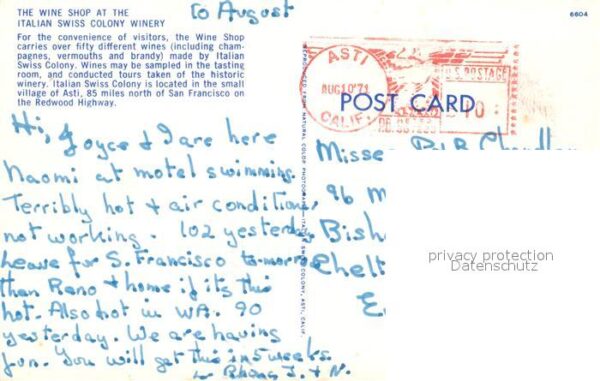 THE WINE SHOP AT THE
ITALIAN SWISS COLONY WINERY
For the convenience of visitors, the Wine Shop
carries over fifty different wines (including cham-
pagnes, vermouths and brandy) made by Italian
Swiss Colony. Wines may be sampled in the tasting
room, and conducted tours taken of the historic
winery. Italian Swiss Colony is located in the small
village of Asti, 85 miles north of San Francisco on
the Redwood Highway.
to August
6604
ASTI
AUG10'71
CALIF.
U.S. POSTAGE
POST CARD
REPRODUCED FROM NATURAL COLOR PHOTOGRAPH—ITALIAN SWISS COLONY, ASTI, CALIF.
Hi, Joyce & I are here
Naomi at motel swimming.
Terribly hot & air condition,
not working. 102 yesterday.
Leave for S. Francisco to-morrow
than Reno & home if its this
hot. Also hot in WA. 90
yesterday. We are having
fun. You will get this in 5 weeks.
J. & N.
Misse
96 M
Bish
Chelt
privacy protection
Datenschutz